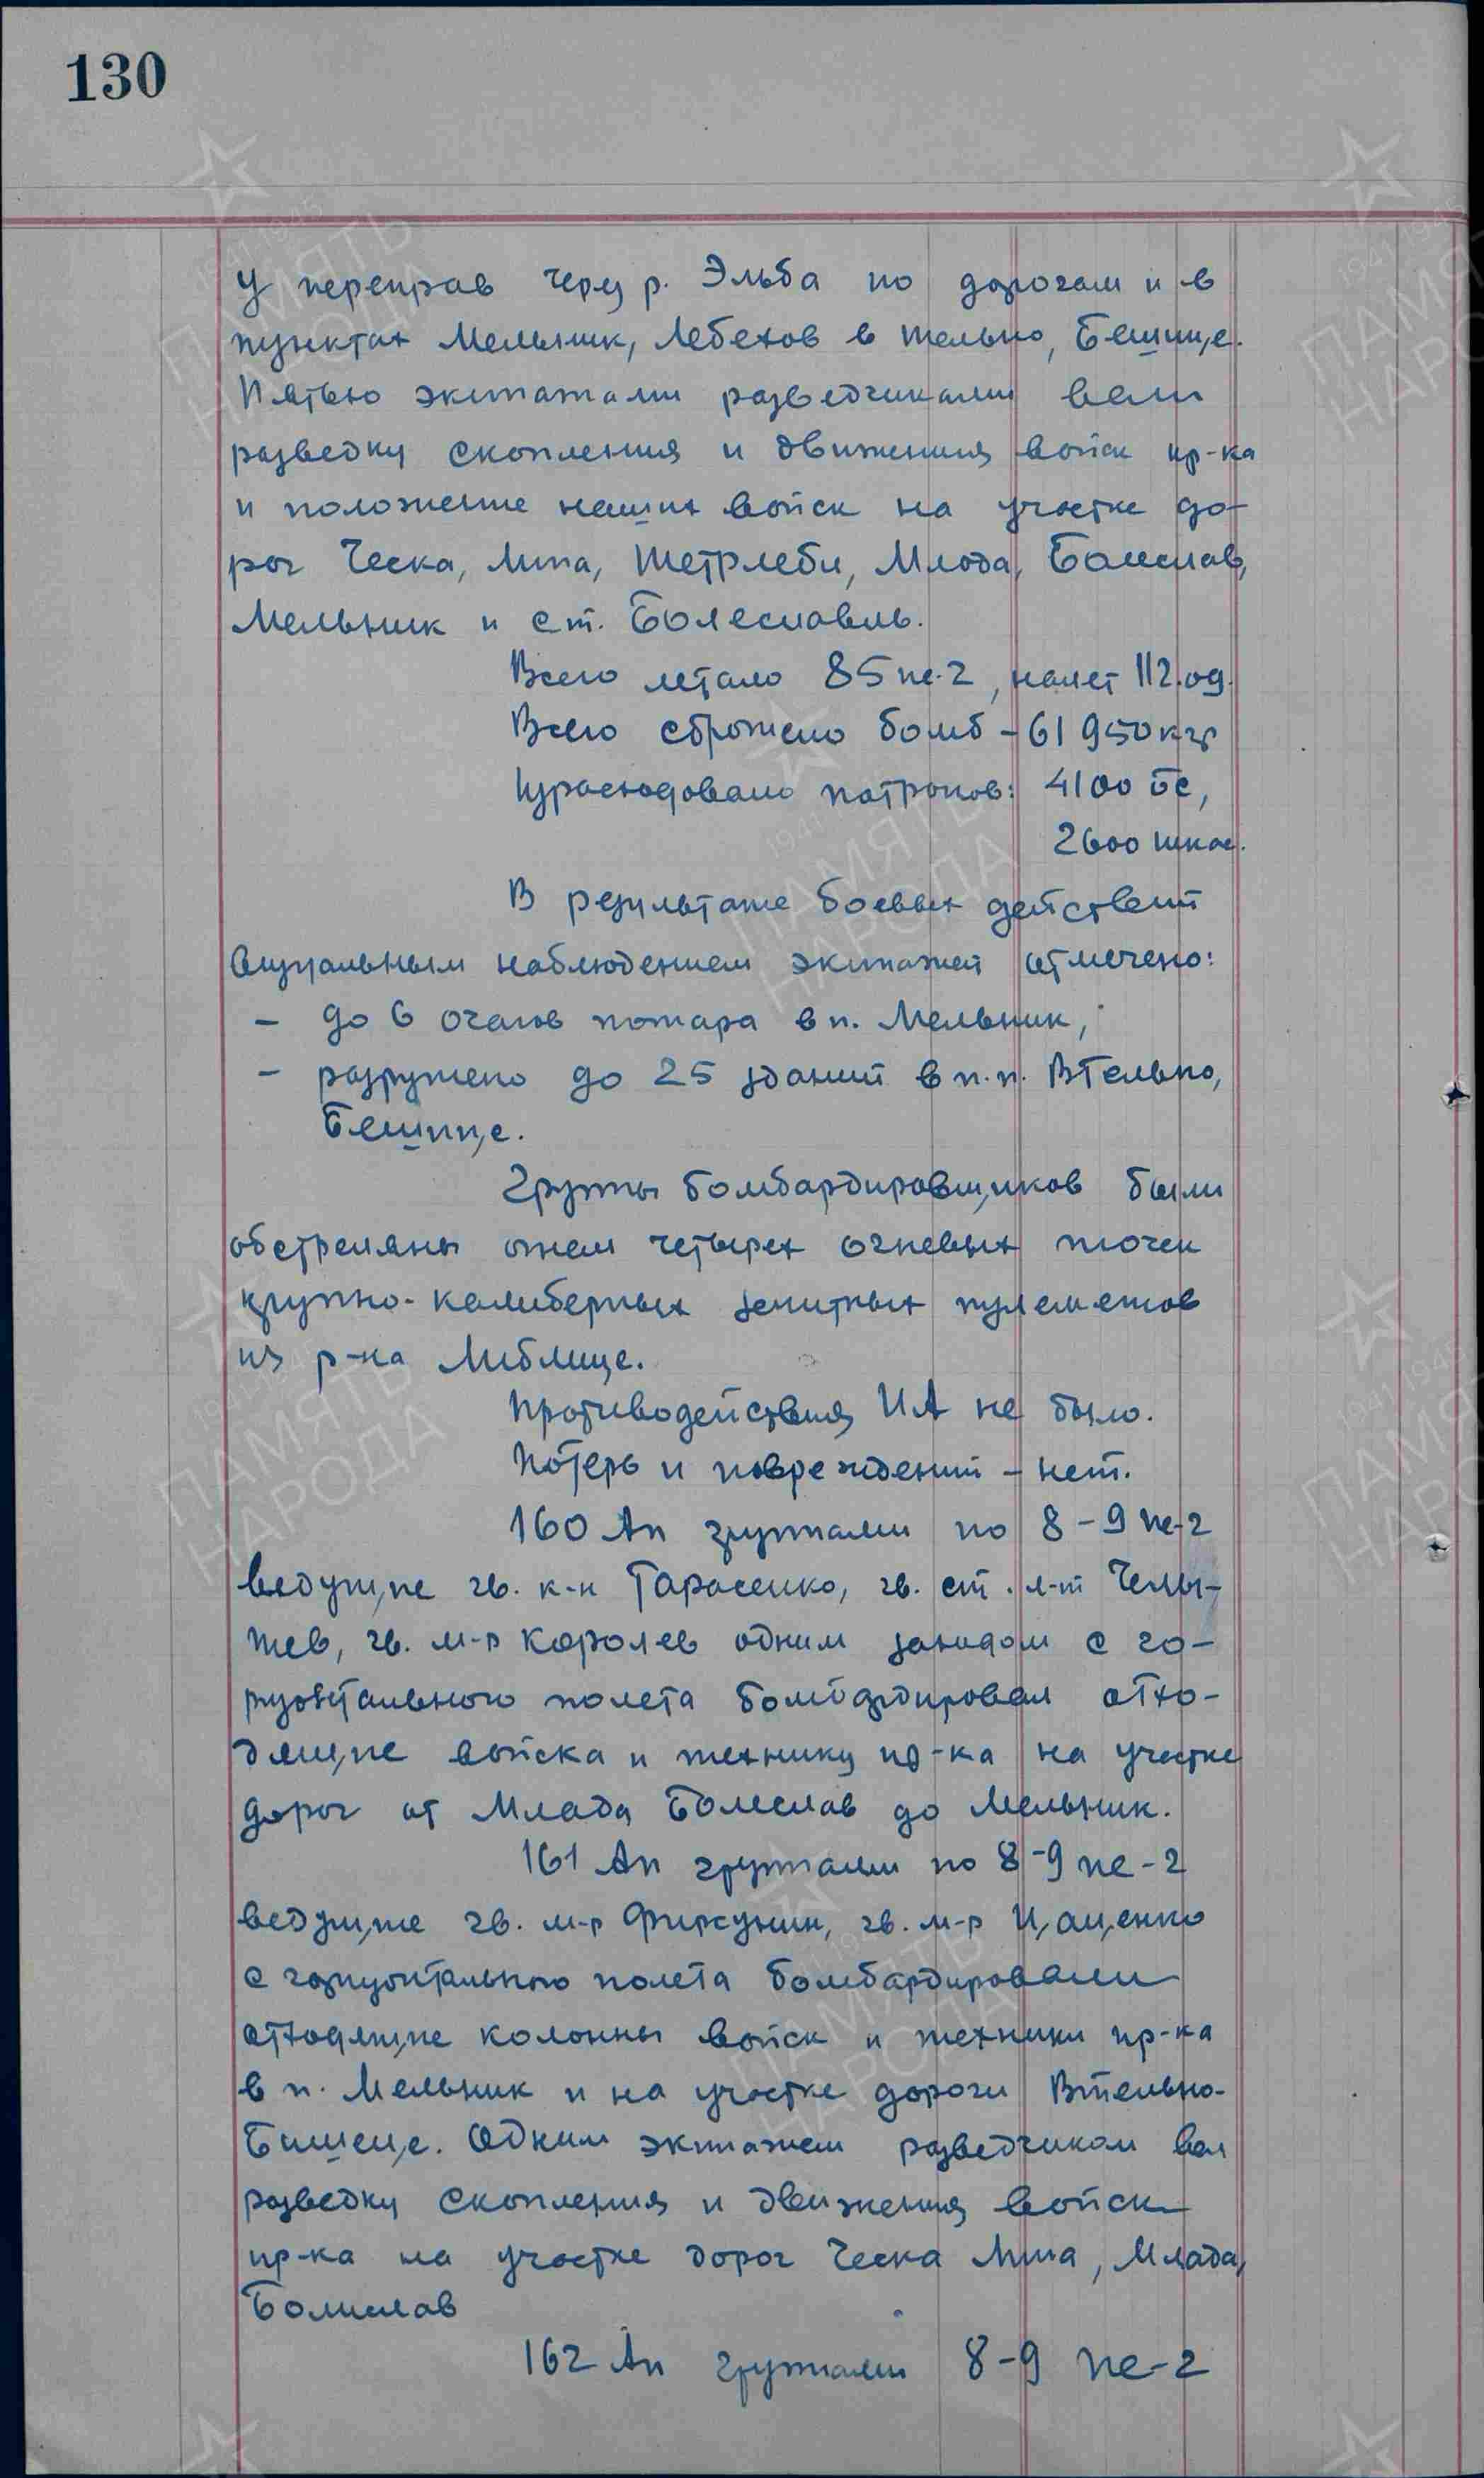 130
у переправ через р. Эльба по дорогам и в
пунктах Мельник, Лебехов в тельно, Бешице.
Пятью экипажами разведчиками вели
разведку скопления и движения войск пр-ка
и положение наших войск на участке до-
рог Ческа, Липа, Штетрлеби, Млода, Болеслав,
Мельник и ст. Болеславль.
Всего летало 85 пе-2, налет 112.09.
Всего сброшено бомб - 61 950 кгр
Израсходовано патронов: 4100 БС,
2600 шкас.
В результате боевых действий
визуальным наблюдением экипажей отмечено:
- до 6 очагов пожара в п. Мельник,
- разрушено до 25 зданий в п.п. Втельно,
Бешице.
Группы бомбардировщиков были
обстреляны огнем четырех огневых точек
крупно-калиберных зенитных пулеметов
из р-на Либлице.
Противодействия ИА не было.
Потерь и повреждений - нет.
160 Ап группами по 8-9 пе-2
ведущие гв. к-н Тарасенко, гв. ст. л-т Челы-
шев, гв. м-р Королев одним заходом с го-
ризонтального полета бомбардировал отхо-
дящие войска и технику пр-ка на участке
дорог от Млада Болеслав до Мельник.
161 Ап группами по 8-9 пе-2
ведущие гв. м-р Фирсунин, гв. м-р Цаценко
с горизонтального полета бомбардировали
отходящие колонны войск и техники пр-ка
в п. Мельник и на участке дороги Втельно-
Бишеце. Одним экипажем разведчиком вел
разведку скопления и движения войск
пр-ка на участке дорог Ческа Липа, Млада,
Болислав
162 Ап группами 8-9 пе-2